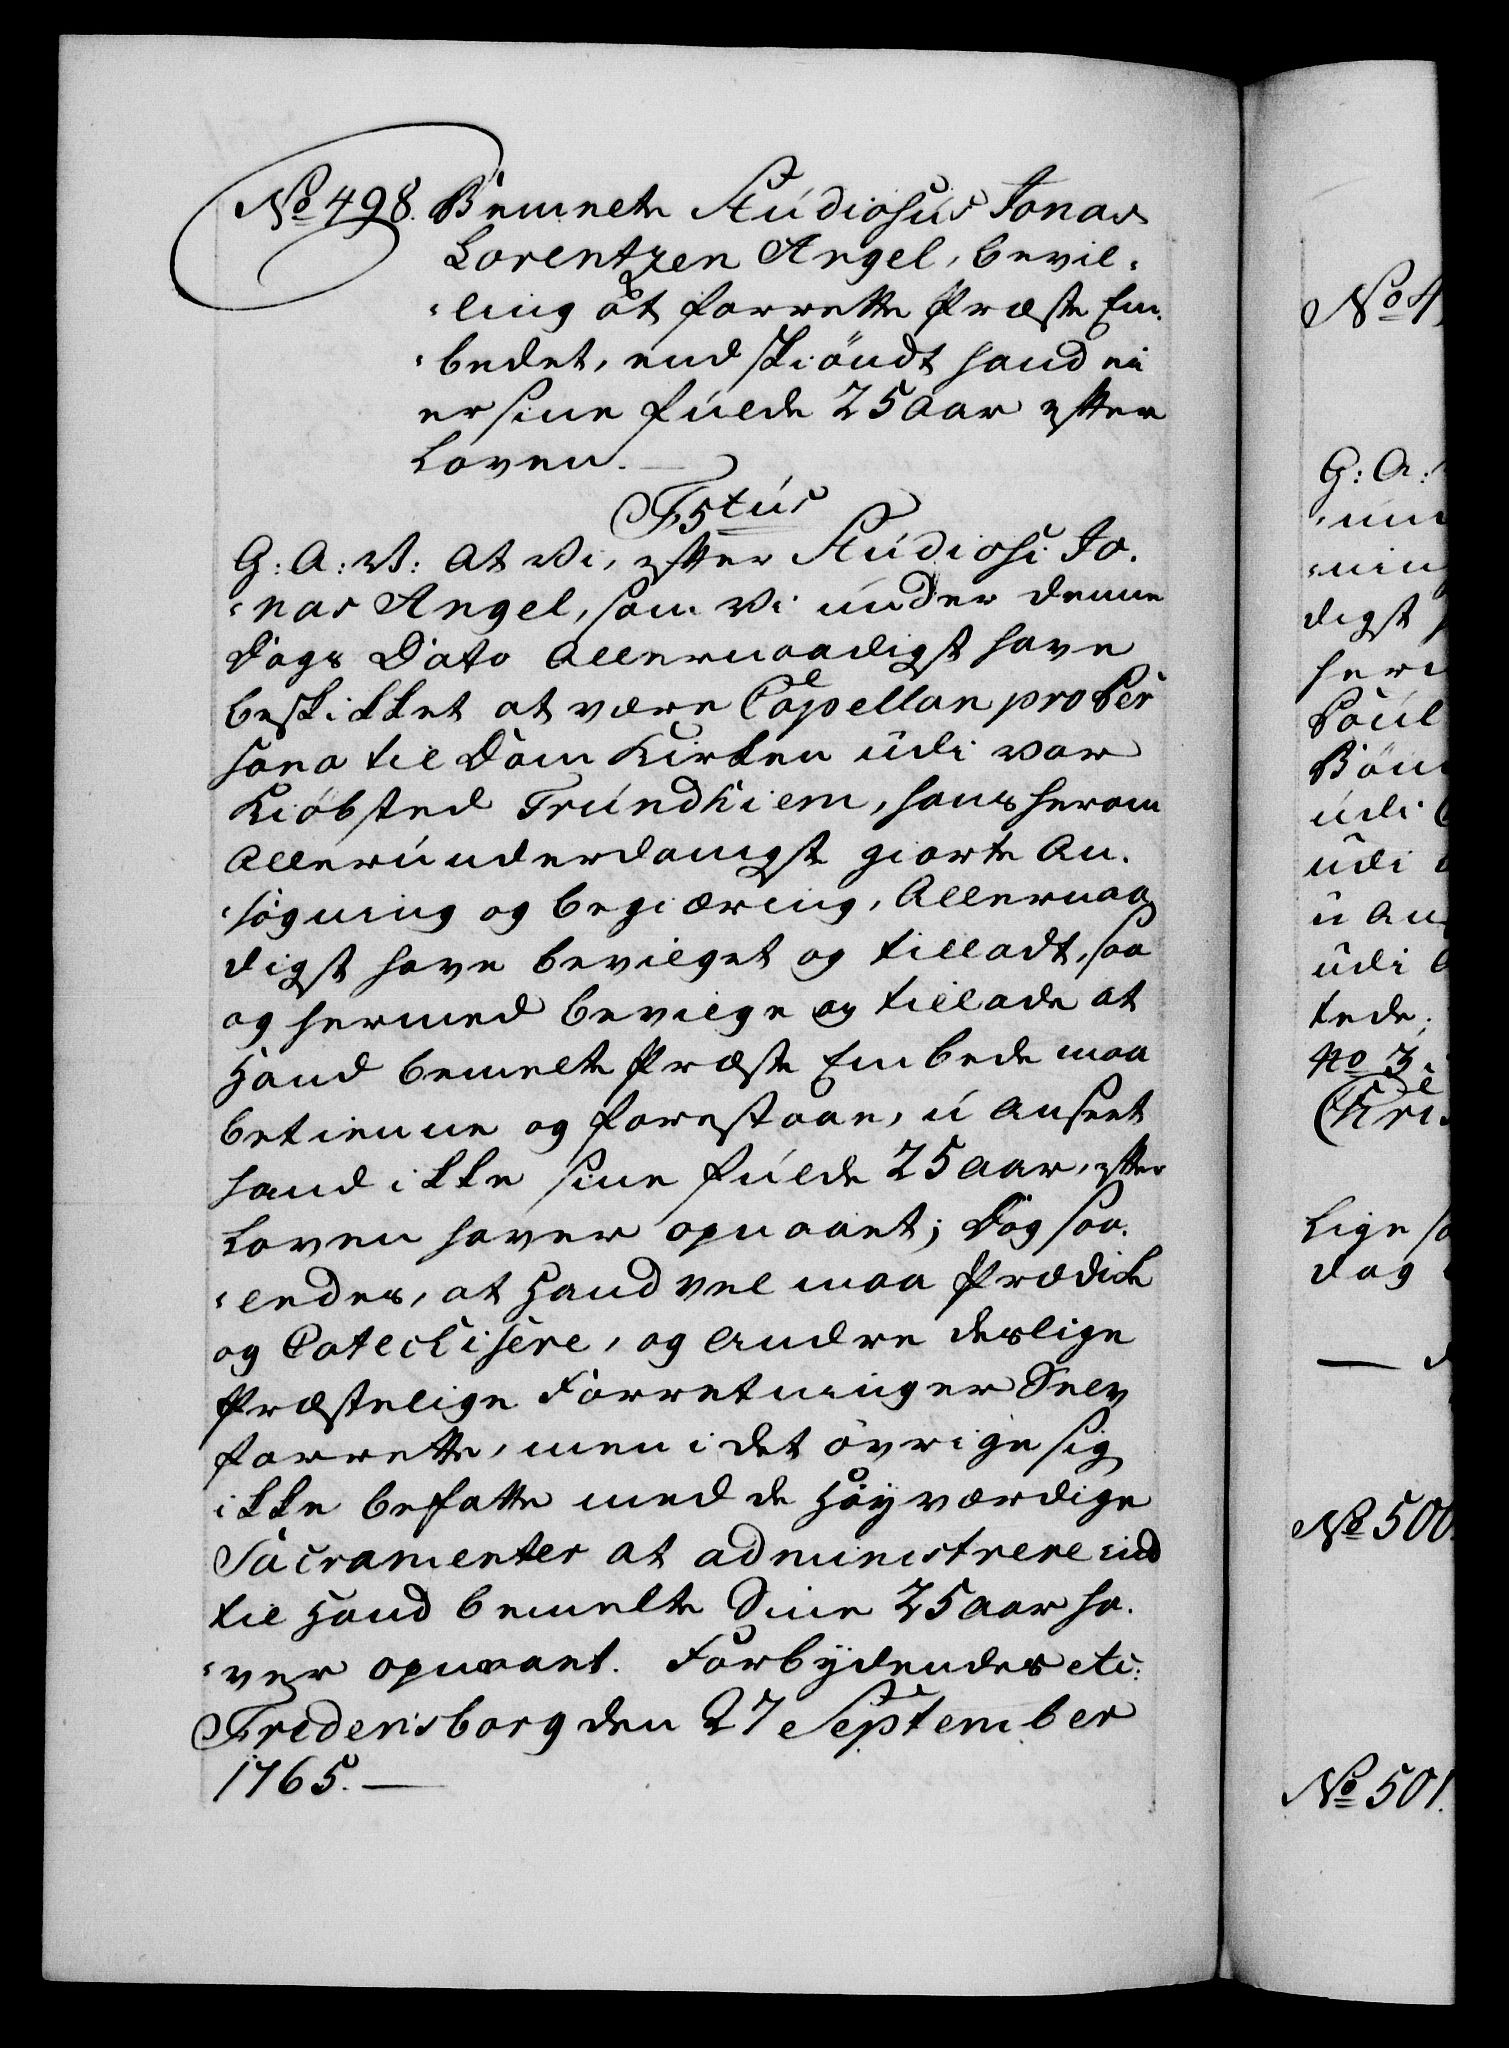 No 498. Bemelte Studiosus Jonas
Lorentzen Angel, bevil-
-ling at forrette Præste Em-
-bedet, endskiöndt hand ei
er sine fulde 25 Aar efter
Loven.
F5tus
G: A: V: At Vi, efter Studiosi Jo-
-nas Angel, som Vi under denne
Dags Dato Allernaadigst have
beskikket at være Capellan pro Per
sona til Dom Kirken udi vor
Kiöbsted Trundhiem, hans herom
Allerunderdanigste giorte An-
-søgning og begiæring, Allernaa
digst have bevilget og tilladt, saa
og hermed bevilge og tillade at
Hand bemelte Præste Embede maa
betienne og forestaae, u anseet
hand ikke sine fulde 25 Aar, efter
Loven haver opnaaet; Dog saa-
-ledes, at Hand vel maa Prædike
og Catechisere, og Andre deslige
Præstelige Forretninger Selv
forrette, men i det övrige sig
ikke befatte med de Höyværdige
Sacramenter at administrere ind
til Hand bemelte Sine 25 Aar ha-
-ver opnaaet. Forbydendes etc:
Fredensborg den 27 September
1765.
No 4
G: A:
digst
Poul
udi
udi
udi
tede;
No 3
Lige
dog
No 500
No 501.